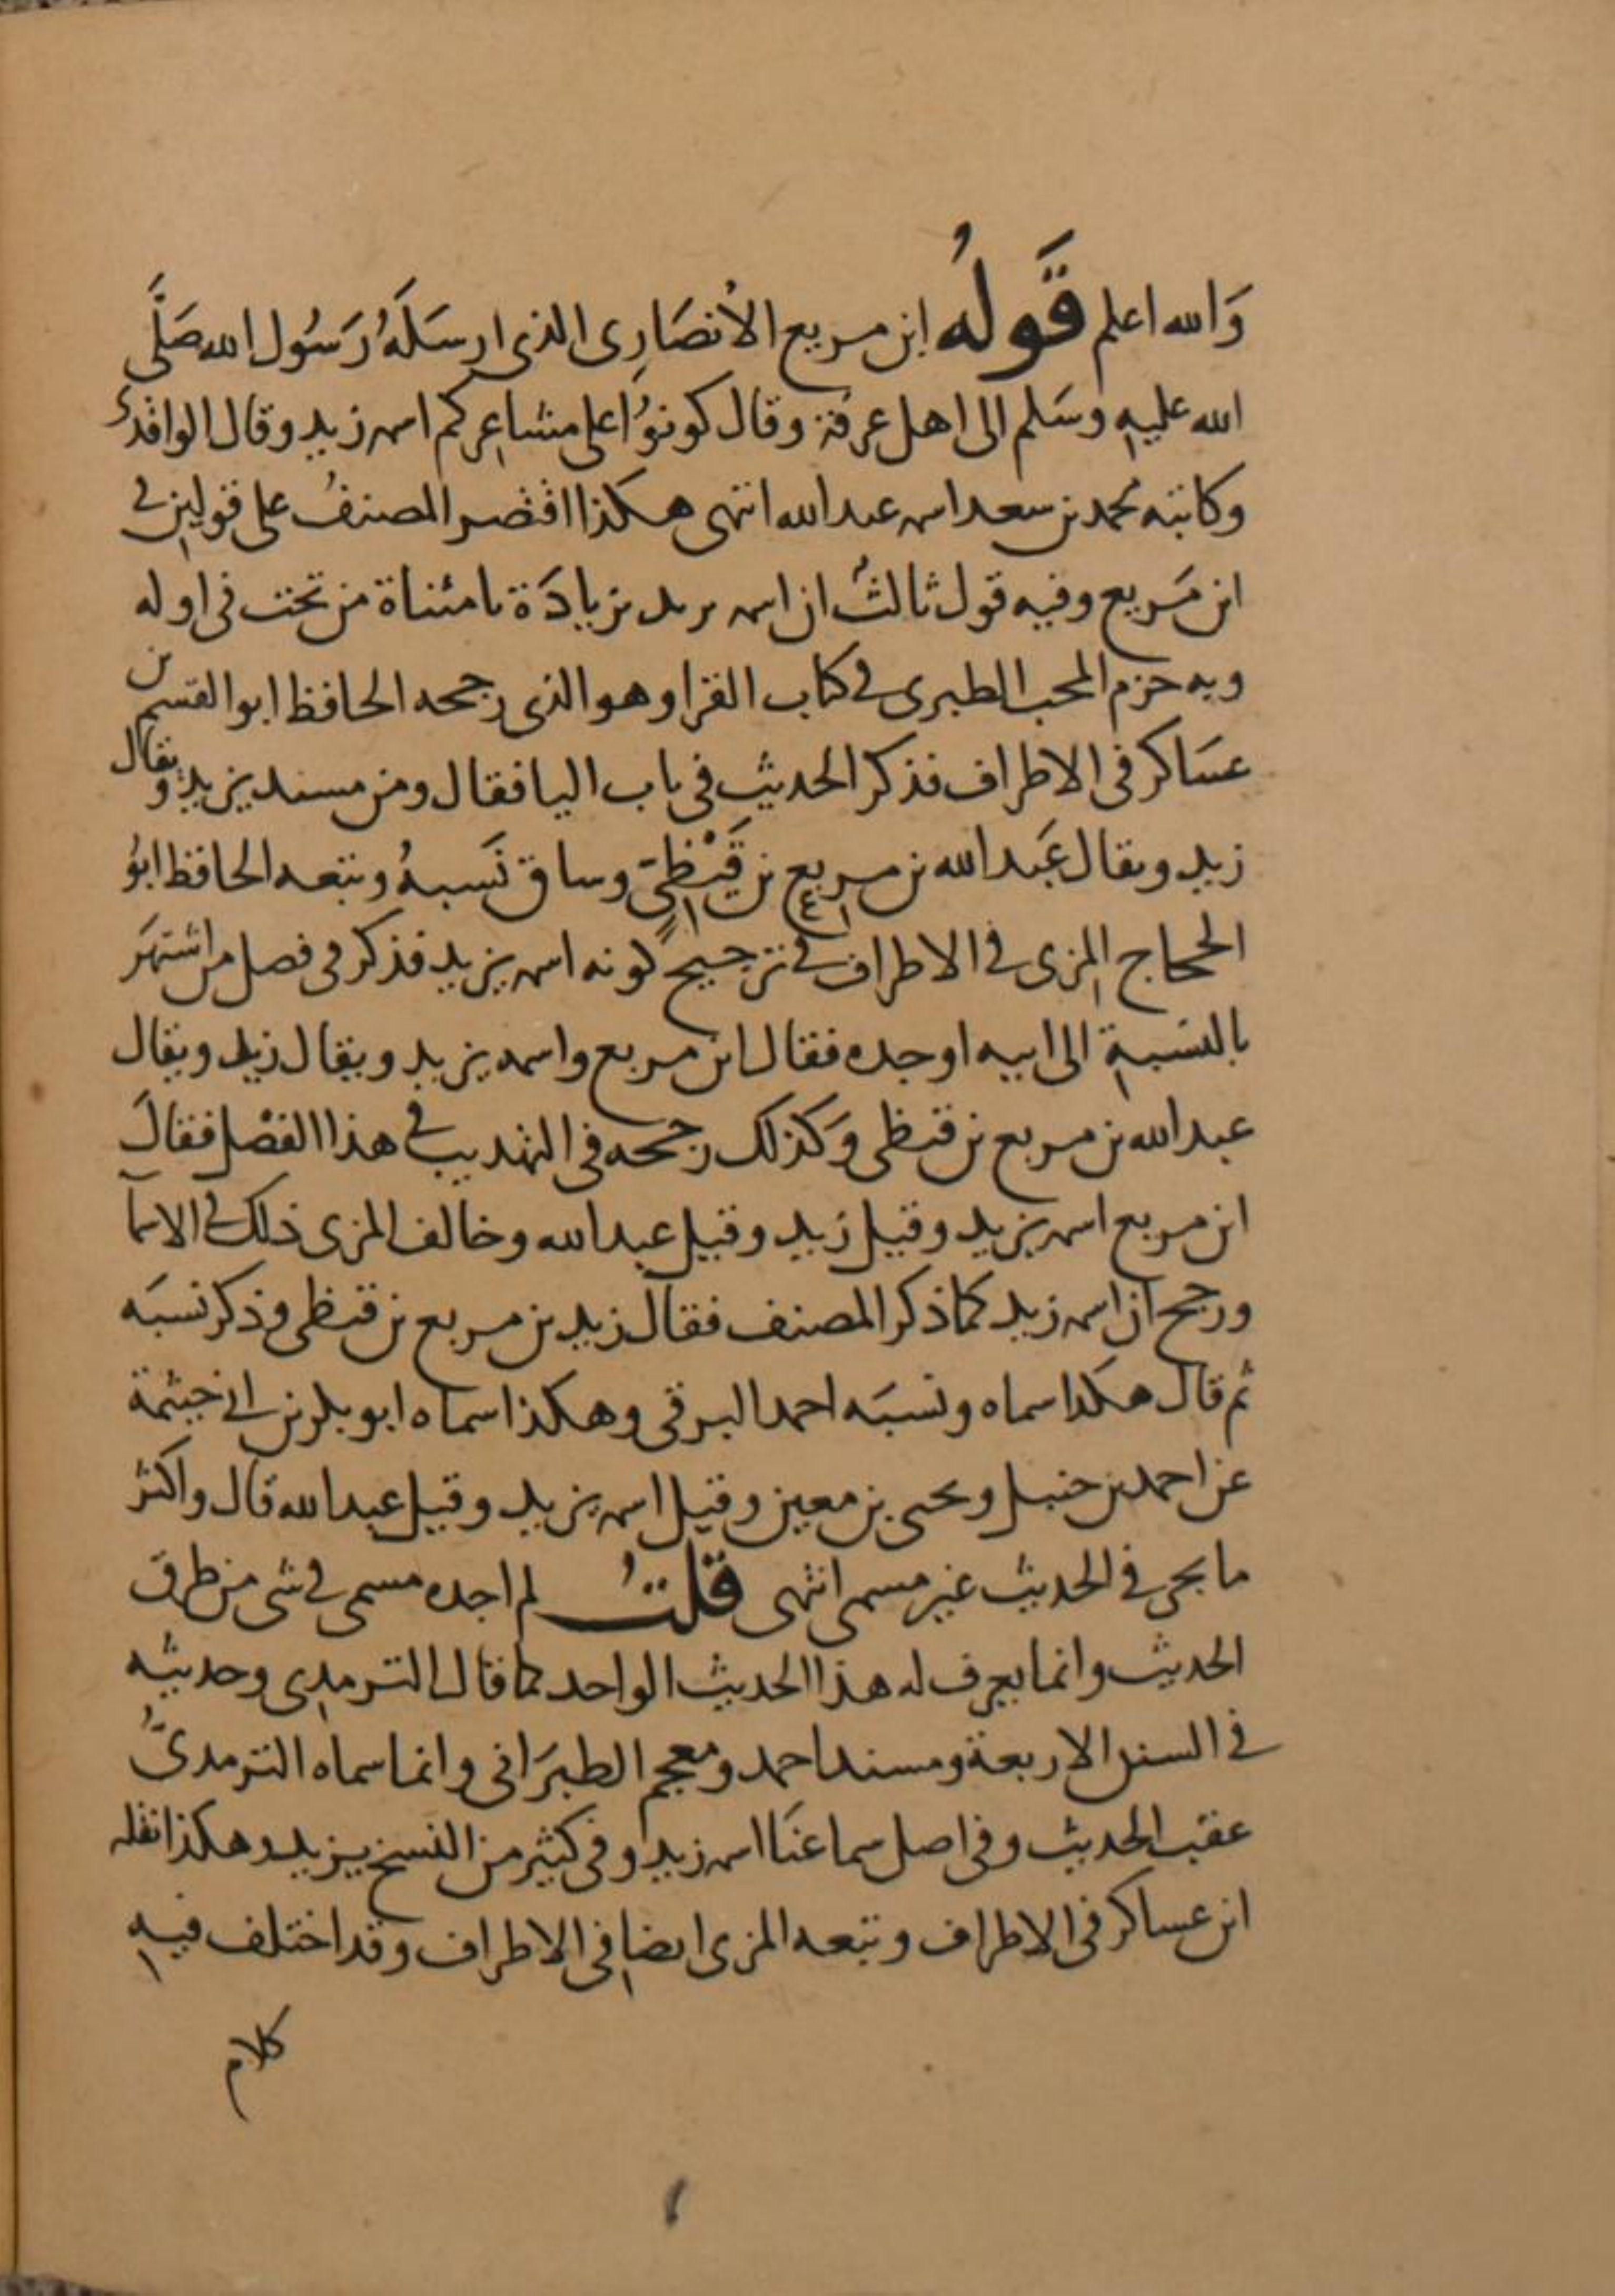 وَالله اعلم قَولُه ابن مربع الأنصَارِى الذى ارسَلَهُ رَسُول الله صَلَّى
الله عليه وسَلم الى اهل عرفة وقال كونوُا على مشاعركم اسمه زيد وقال الواقدى
وكاتبه محمد بن سعد اسمه عبد الله انتهى هكذا اقتصر المصنفُ على قولين فى
ابن مَربع وفيه قول ثالثٌ ان اسمه يزيد بزيادَة يا مثناة من تحت فى اوله
وبه جزم المحب الطبرى فى كتاب القرا وهو الذى رجحه الحافظ ابو القسم بن
عسَاكر فى الاطراف فذكر الحديث فى باب اليا فقال ومن مسند يزيد ويقال
زيد ويقال عَبد الله بن مربع بن قَيْظِىّ وساق نَسبهُ وتبعه الحافظ ابوُ
الحجاج المزى فى الاطراف فى ترجيح كونه اسمه يزيد فذكر فى فصل من اشتهَر
بالنسبة الى ابيه او جده فقال ابن مربع واسمه يزيد ويقال زيد ويقال
عبد الله بن مربع بن قيظى وَكذلك رجحه فى التهذيب فى هذا الفصْل فقالَ
ابن مربع اسمه يزيد وقيل زيد وقيل عبد الله وخالف المزى ذلك فى الاسمآ
ورجح ان اسمه زيد كما ذكر المصنف فقال زيد بن مربع بن قيظى وذكر نسبَه
ثم قال هكذا سماه ونسبَه احمد البرقى وهكذا سماه ابو بكر بن ابى خيثمة
عن احمد بن حنبل ويحيى بن معين وقيل اسمه يزيد وقيل عبد الله قال واكثر
ما يجى فى الحديث غير مسمى انتهى قلتُ لم اجده مسمى فى شى من طرق
الحديث وانما يعرف له هذا الحديث الواحد كما قال الترمدى وحديثه
فى السنن الاربعة ومسند احمد ومعجم الطبرَانى وانما سماه الترمدىُّ
عقب الحديث وفى اصل سماعنَا اسمه زيد وفى كثير من النسخ يزيد وهكذا نقله
ابن عساكر فى الاطراف وتبعه المزى ايضا فى الاطراف وقد اختلف فيه
كلام